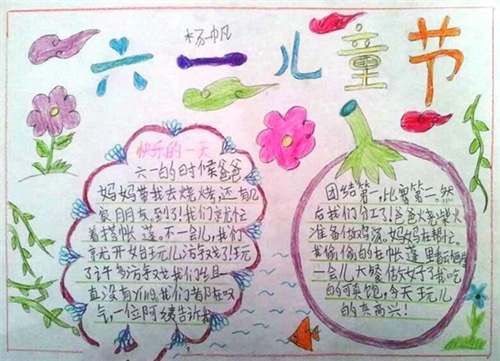 杨帆
六一儿童节
快乐的一天
六一的时候爸爸
妈妈带我去烧烤,还有几
家朋友,到了我们就忙
着搭帐篷。不一会儿,我们
就开始玩儿游戏了玩
了许多游戏我们组一
直没有 我们都在叹
气,一位阿姨告诉我
团结第一,比赛第二。然
后我们分工了爸爸火柴火
准备做鸡汤。妈妈在帮忙。
我偷偷的在帐篷里
一会儿大餐做好了我吃
的可真饱,今天玩儿
的真高兴!